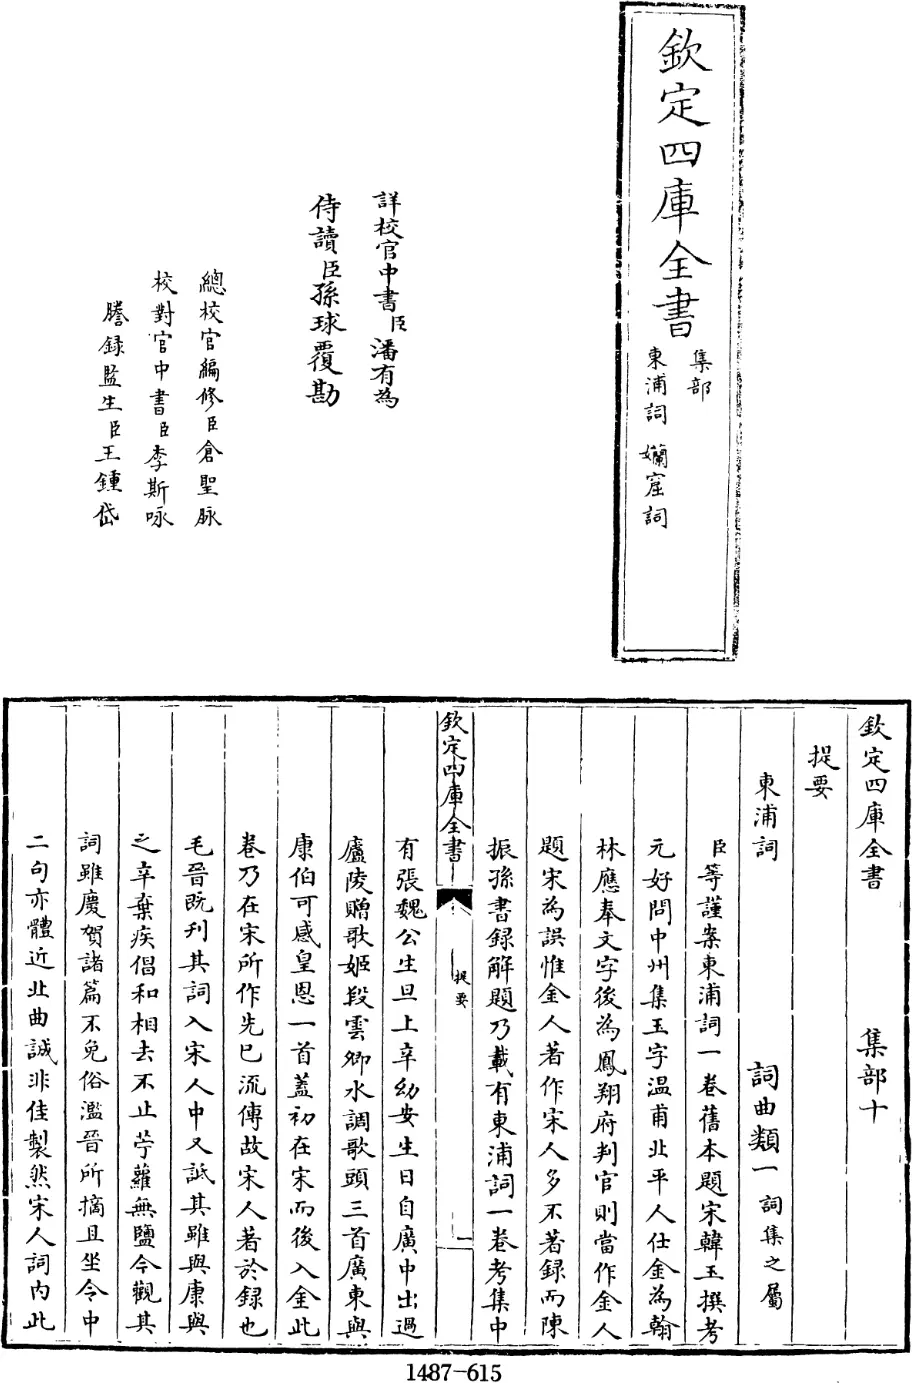 欽定四庫全書
集部
東浦詞 嬾窟詞
詳校官中書臣潘有為
侍讀臣孫球覆勘
總校官編修臣倉聖脉
校對官中書臣李斯咏
謄録監生臣王鍾岱
欽定四庫全書 集部十
提要
東浦詞 詞曲類一詞集之屬
臣等謹案東浦詞一卷舊本題宋韓玉撰考
元好問中州集玉字溫甫北平人仕金為翰
林應奉文字後為鳳翔府判官則當作金人
題宋為誤惟金人著作宋人多不著録而陳
振孫書録解題乃載有東浦詞一卷考集中
欽定四庫全書
提要
有張魏公生旦上辛幼安生日自廣中出過
廬陵贈歌姬段雲卿水調歌頭三首廣東與
康伯可感皇恩一首蓋初在宋而後入金此
卷乃在宋所作先已流傳故宋人著於録也
毛晉既刋其詞入宋人中又詆其雖與康與
之辛棄疾倡和相去不止苧蘿無鹽今觀其
詞雖慶賀諸篇不免俗濫晉所摘且坐令中
二句亦體近北曲誠非佳製然宋人詞内此
1487-615